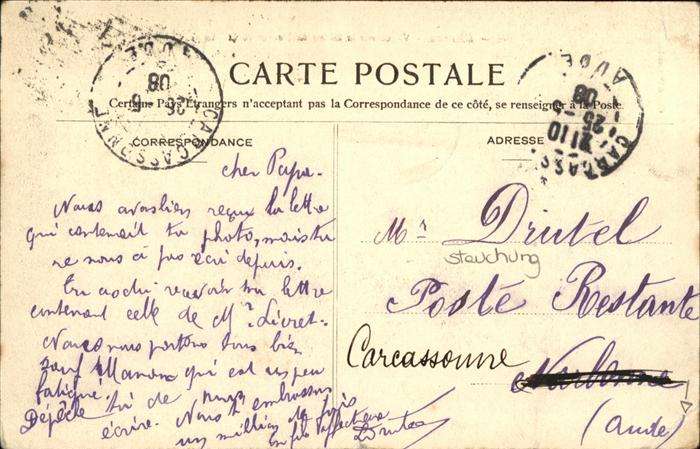 CARTE POSTALE
Certains Pays Étrangers n'acceptant pas la Correspondance de ce côté, se renseigner à la Poste.
CORRESPONDANCE
cher Papa-
Nous avons bien reçu ta lettre
qui contenait ta photo, mais tu
ne nous a pas écri depuis.
recevoir ta lettre
contenant celle de Mr
Nous nous portons tous bien
sauf Maman qui est un peu
fatigué.
Dépêche toi de nous
écrire. Nous t embrassons
un million de fois
Ton fils affectueux
Drutel
ADRESSE
Mr Drutel
stauchung
Poste Restante
Carcassonne
Narbonne
(Aude)
CARCASSONNE
AUDE
25 - 5
08
CARCASSONNE
AUDE